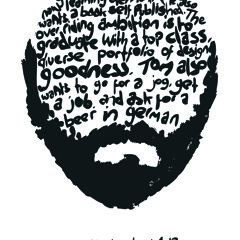 wants a book self published. The
over riding ambition is to
graduate with a top class
diverse portfolio of design
goodness. Tom also
wants to go for a jog, get
a job, and ask for a
beer in german